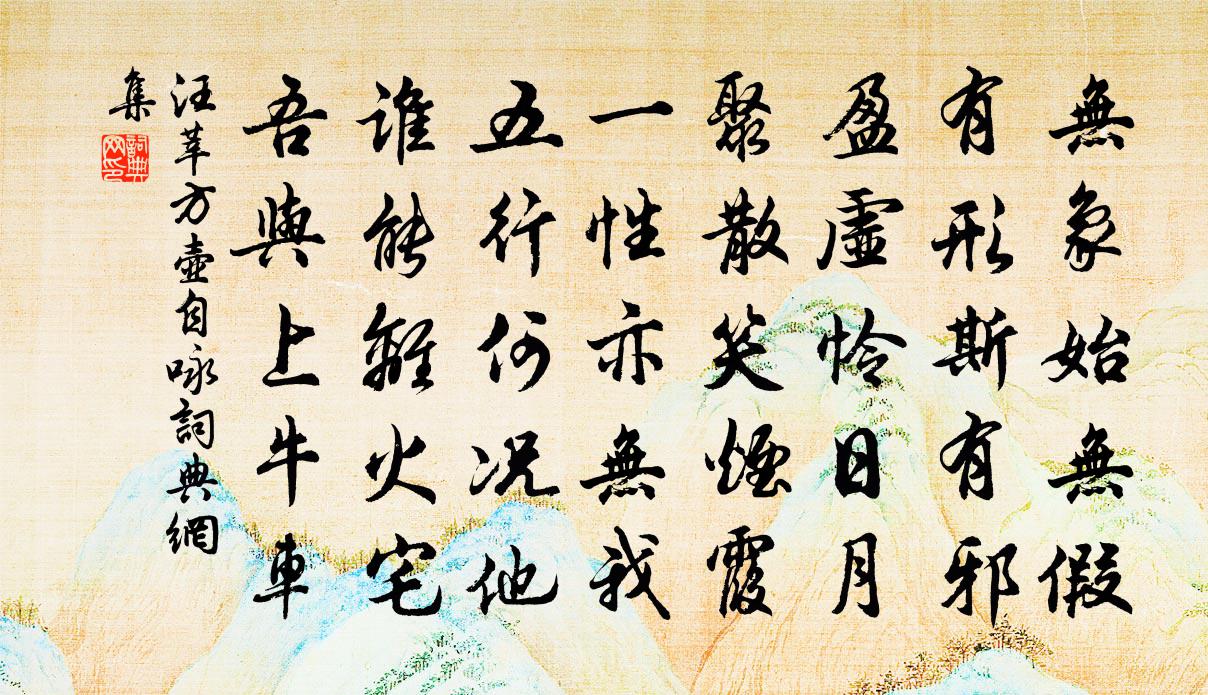 無象始無假
有形斯有邪
盈虛怜日月
聚散笑煙霞
一性亦無我
五行何況他
誰能離火宅
吾與上牛車
汪莘方壺自咏詞典網
集
詞典
网印